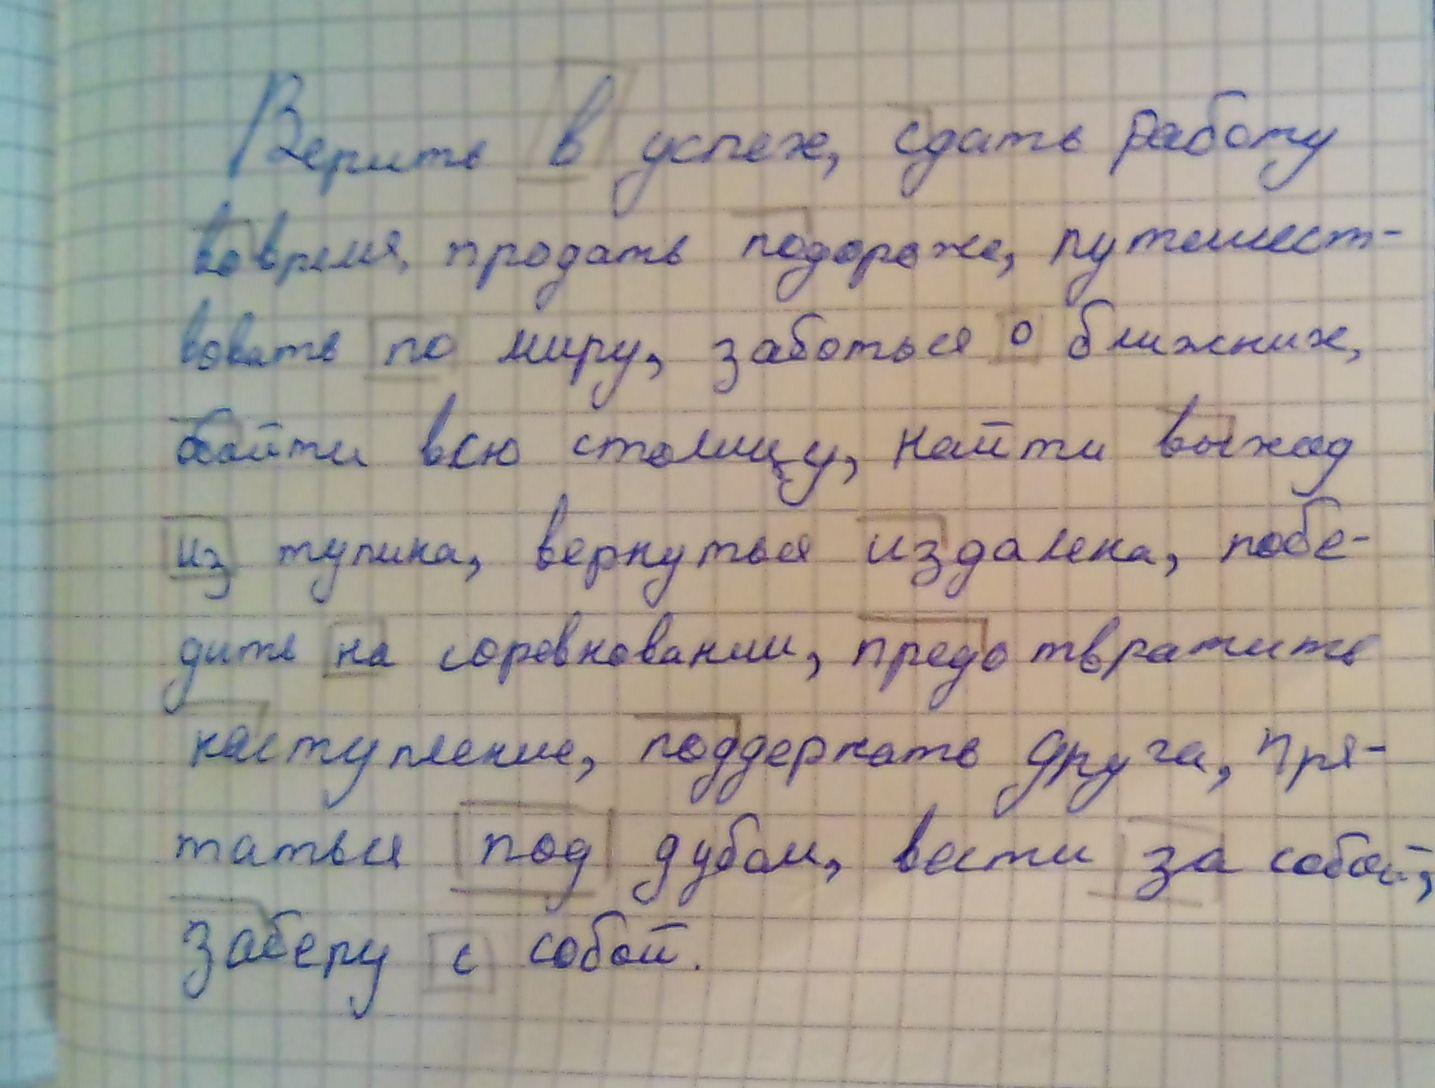 Верить в успех, сдать работу
вовремя, продать подороже, путешест-
вовать по миру, заботься о ближних,
обойти всю столицу, найти выход
из тупика, вернуться издалека, побе-
дить на соревновании, предотвратить
наступление, поддержать друга, пря-
таться под дубом, вести за собой,
заберу с собой.